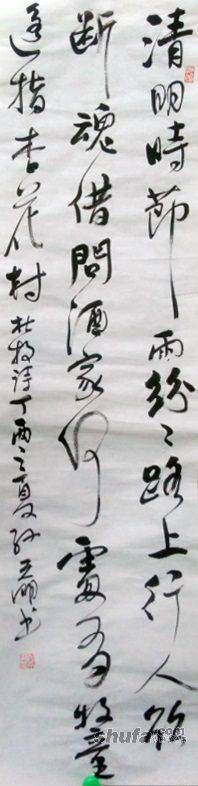 清明時節雨紛〻路上行人欲
断魂借問酒家何處有牧童
遥指杏花村杜牧詩丁酉之夏孙
书